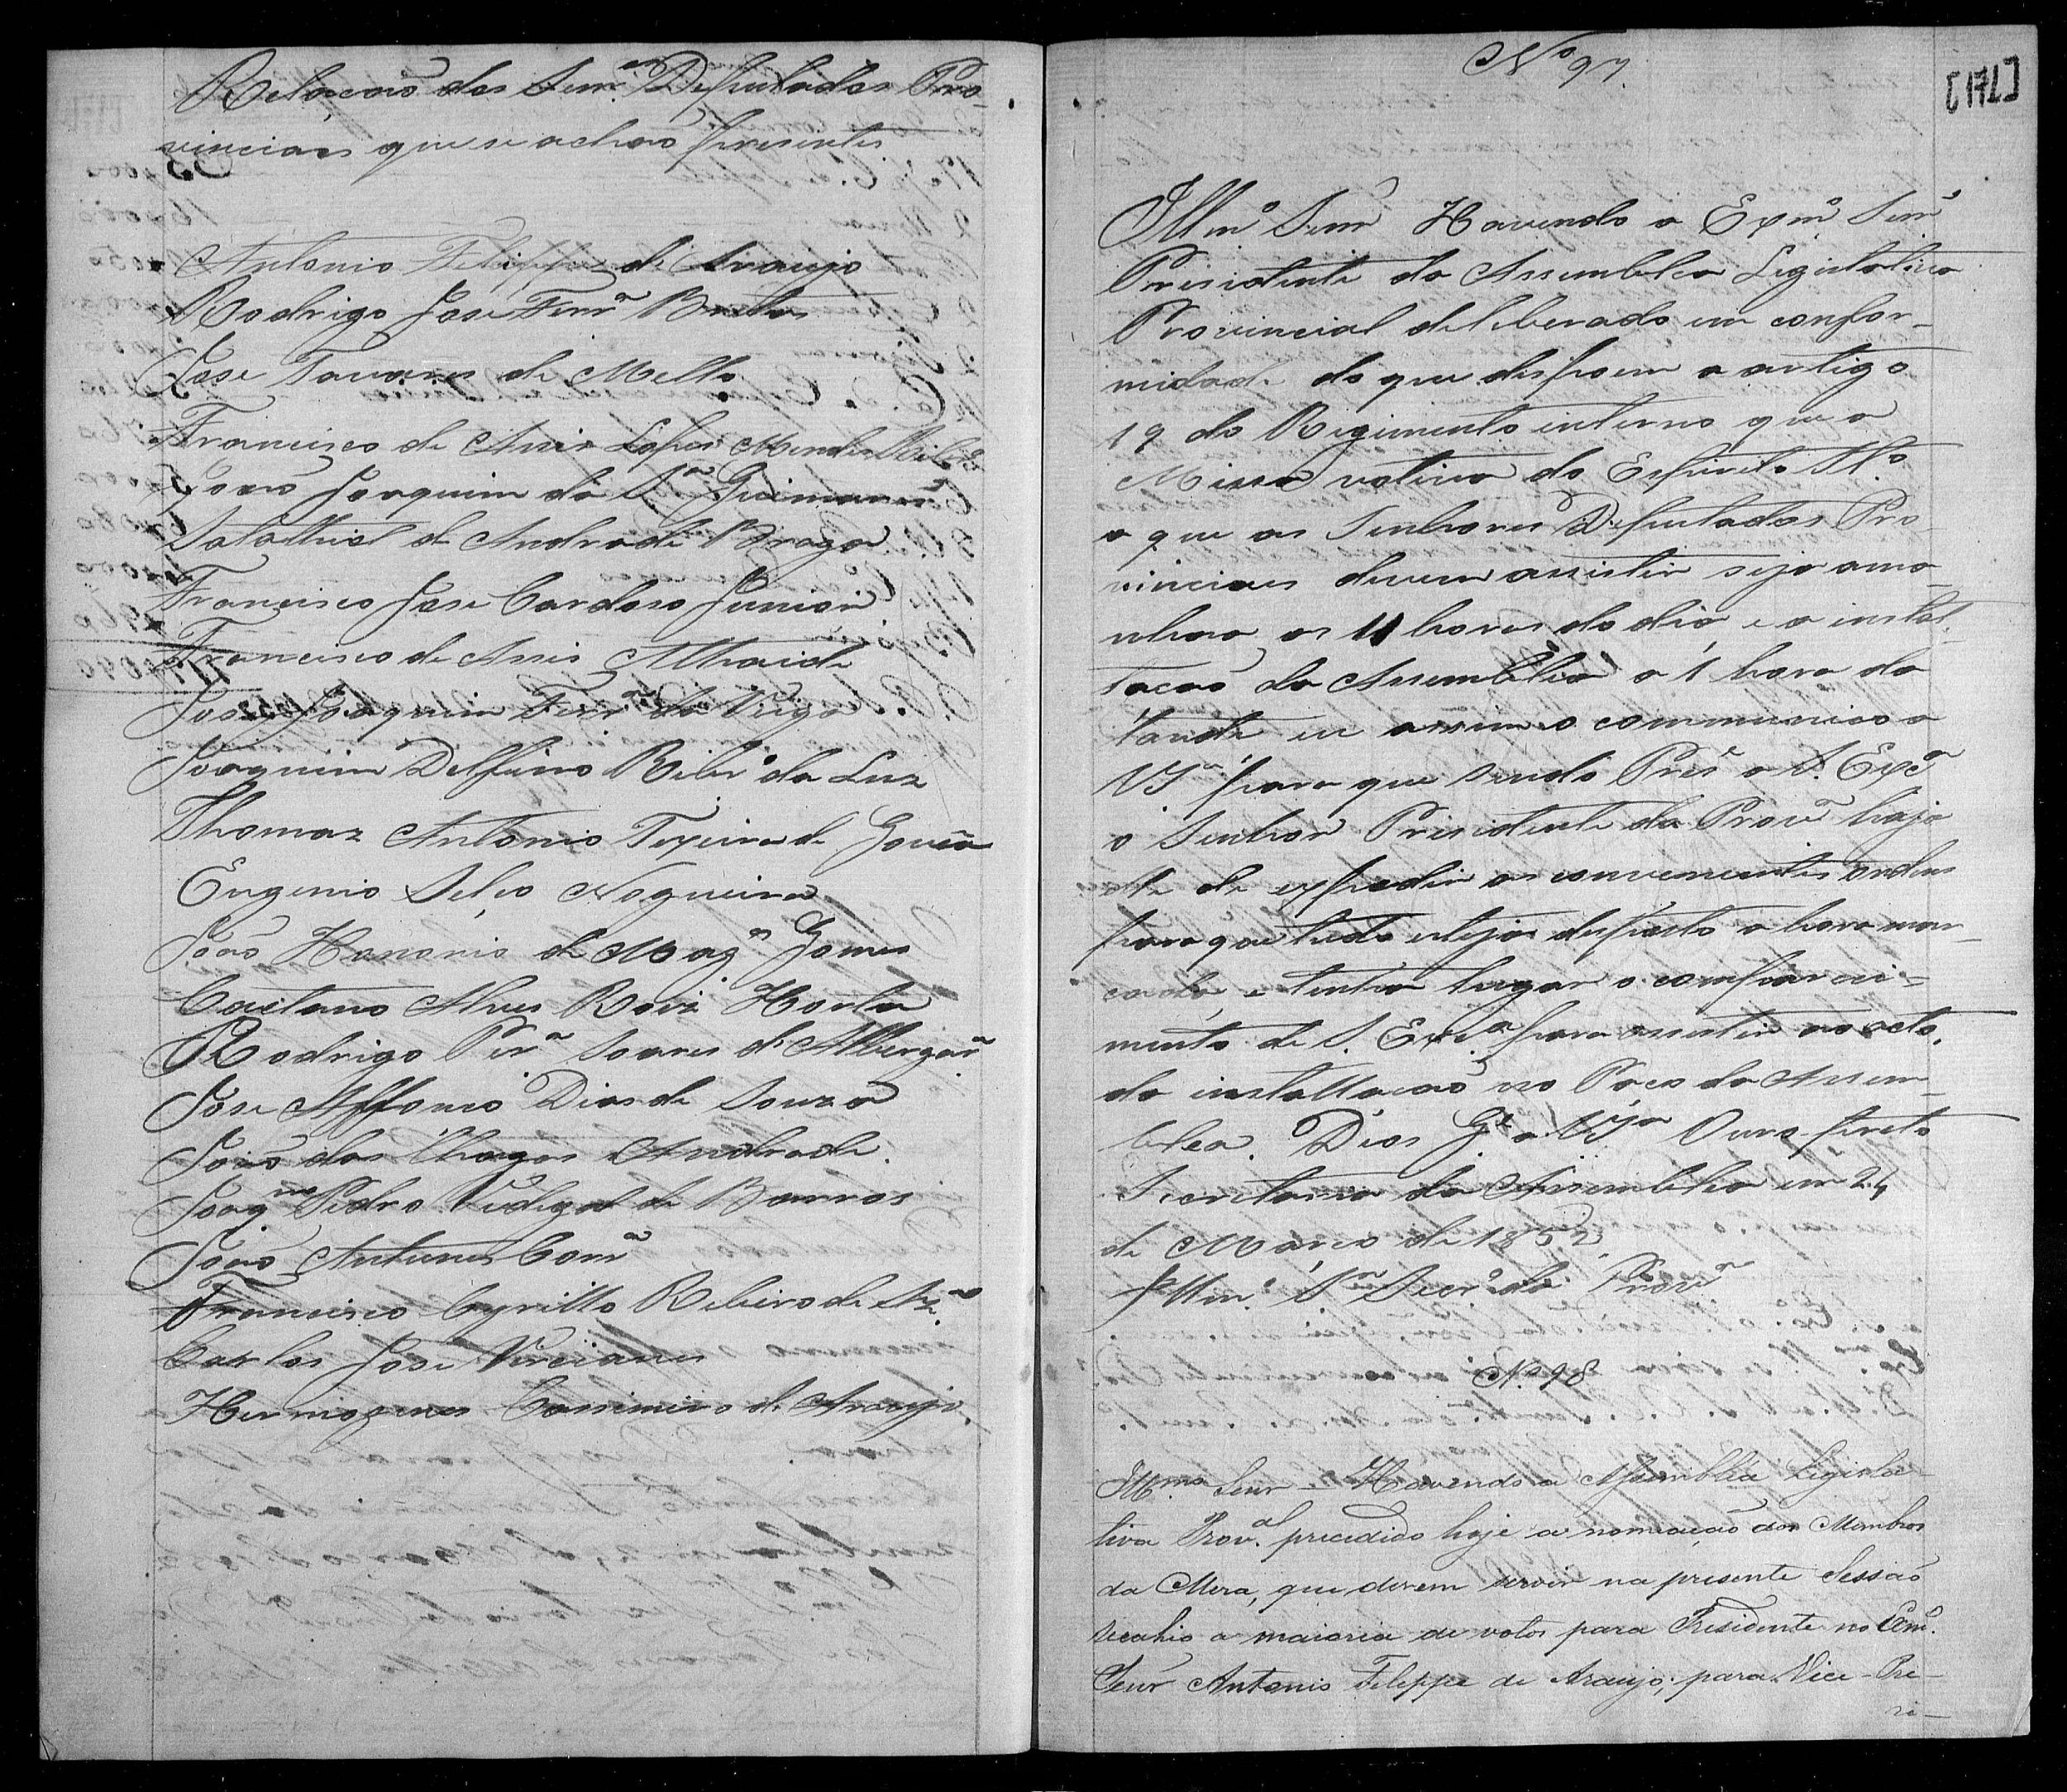 Relação dos Senr.es Deputados Pro-
vinciaes que se achão presentes
Antonio Felippe de Araujo
Rodrigo José Ferr.a Bretas
José Tavares de Mello
Francisco de Assis Lopes Mendes Ribr.o
João Joaquim da S.a Guimarães
Salathiel de Andrade Braga
Francisco José Cardoso Junior
Francisco de Assis Athaide
José Joaquim Ferr.a da Veiga
Joaquim Delfino Ribr.o da Luz
Thomaz Antonio Texeira de Gouvêa
Eugenio Celso Nogueira
João Honorio de Mag.es Gomes
Caetano Alves Roiz Horta
Rodrigo Per.a Soares d'Albergar.a
José Affonso Dias de Souza
João das Chagas Andrade.
Joaq.m Pedro Vidigal de Barros
João Antunes Corr.a
Francisco Cyrillo Ribeiro de
Carlos José Versianes
Hermogenes Cassimiro de Araujo.
No 97.
[171]
Illm.o Senr Havendo o Exm.o Senr
Presidente da Assemblea Legislativa
Provincial deliberado em confor-
midade do que dispoem o artigo
19 do Regimento interno que a
Missa votiva do Espirito St.o
a que os Senhores Deputados Pro
vinciaes devem assistir seja ama-
nhaã as 11 horas do dia e a instal
lação da Assemblea a 1 hora da
tarde eu assim o communico a
VS.a para que sendo Pres.e a S. Exc.a
o Senhor Presidente da Prov.a haja
se de expedir as convenientes ordens
para que tudo esteja desposto a hora mar-
cada, e tenha lugar o compareci-
mento de S. Exc.a para assistir ao acto.
da installacão no Paço da Assem-
blea. Dios G.e a VS.a Ouro preto
Secretaria da Assemblea em 24
de Março de 1852
Illm.o S.r Secr.o da Prov.a
No 98
Illmo Senr – Havendo a Assemblea Legisla-
tiva Prov.al precedido hoje a nomeação dos Membros
da Mesa, que devem servir na presente Sessão
recahio a maioria de votos para Presidente no Exm.o
Senr Antonio Fileppe de Araujo; para Vice-Pre-
si-